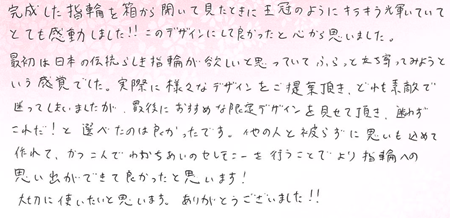 完成した指輪を箱から開いて見たときに王冠のようにキラキラ光輝いていて
とても感動しました!! このデザインにして良かったと心から思いました。
最初は日本の伝統らしき指輪が欲しいと思っていて ふらっと立ち寄ってみようと
いう感覚でした。実際に様々なデザインをご提案頂き、どれも素敵で
迷ってしまいましたが、最後におすすめな限定デザインを見せて頂き、迷わず
これだ!と選べたのは良かったです。他の人と被らずに思いも込めて
作れて、かつ二人でわかちあいのセレモニーを行うことでより指輪への
思い出ができて良かったと思います!
大切に使いたいと思います。ありがとうございました!!